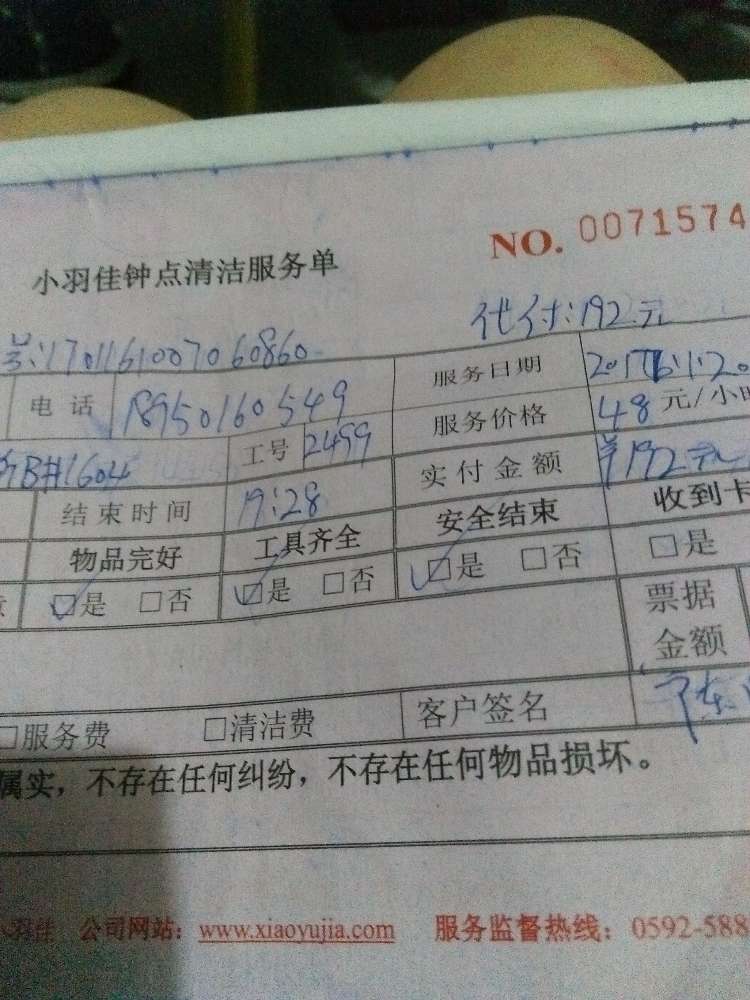 NO. 0071574
小羽佳钟点清洁服务单
代付:192元
号:17011610070 60860
电话 18950160549 服务日期 2017.1.20
B#1604 工号 2499 服务价格 48元/小时
结束时间 19:28 实付金额 ¥192元
物品完好 工具齐全 安全结束 收到卡
☑是 □否 ☑是 □否 ☑是 □否 □是
票据金额
□服务费 □清洁费 客户签名
属实，不存在任何纠纷，不存在任何物品损坏。
小羽佳 公司网站：www.xiaoyujia.com 服务监督热线：0592-588